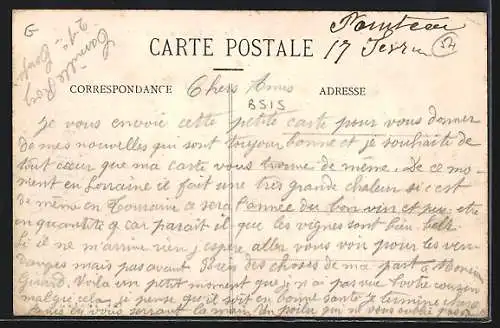 G
CARTE POSTALE
17
52
CORRESPONDANCE
ADRESSE
Chers Amis
BSIS
Je vous envoie cette petite carte pour vous donner
de mes nouvelles qui sont toujour bonne et je souhaite de
tout cœur que ma carte vous trouve de même. De ce mo-
ment en Lorraine il fait une très grande chaleur si c'est
de même en Touraine ce sera l'année du bon vin et puis etre
en quantité car parait il que les vignes sont bien belle
Si il ne m'arrive rien j'espère aller vous voir pour les ven-
danges mais pas avant des choses de ma part à
Girard. Voila un petit moment que je n'ai pas vue votre cousin
malgre cela je pense qu'il soit en bonne santé je termine chers
Amis en vous serrant la main Un poilu qui ne vous oublie pas